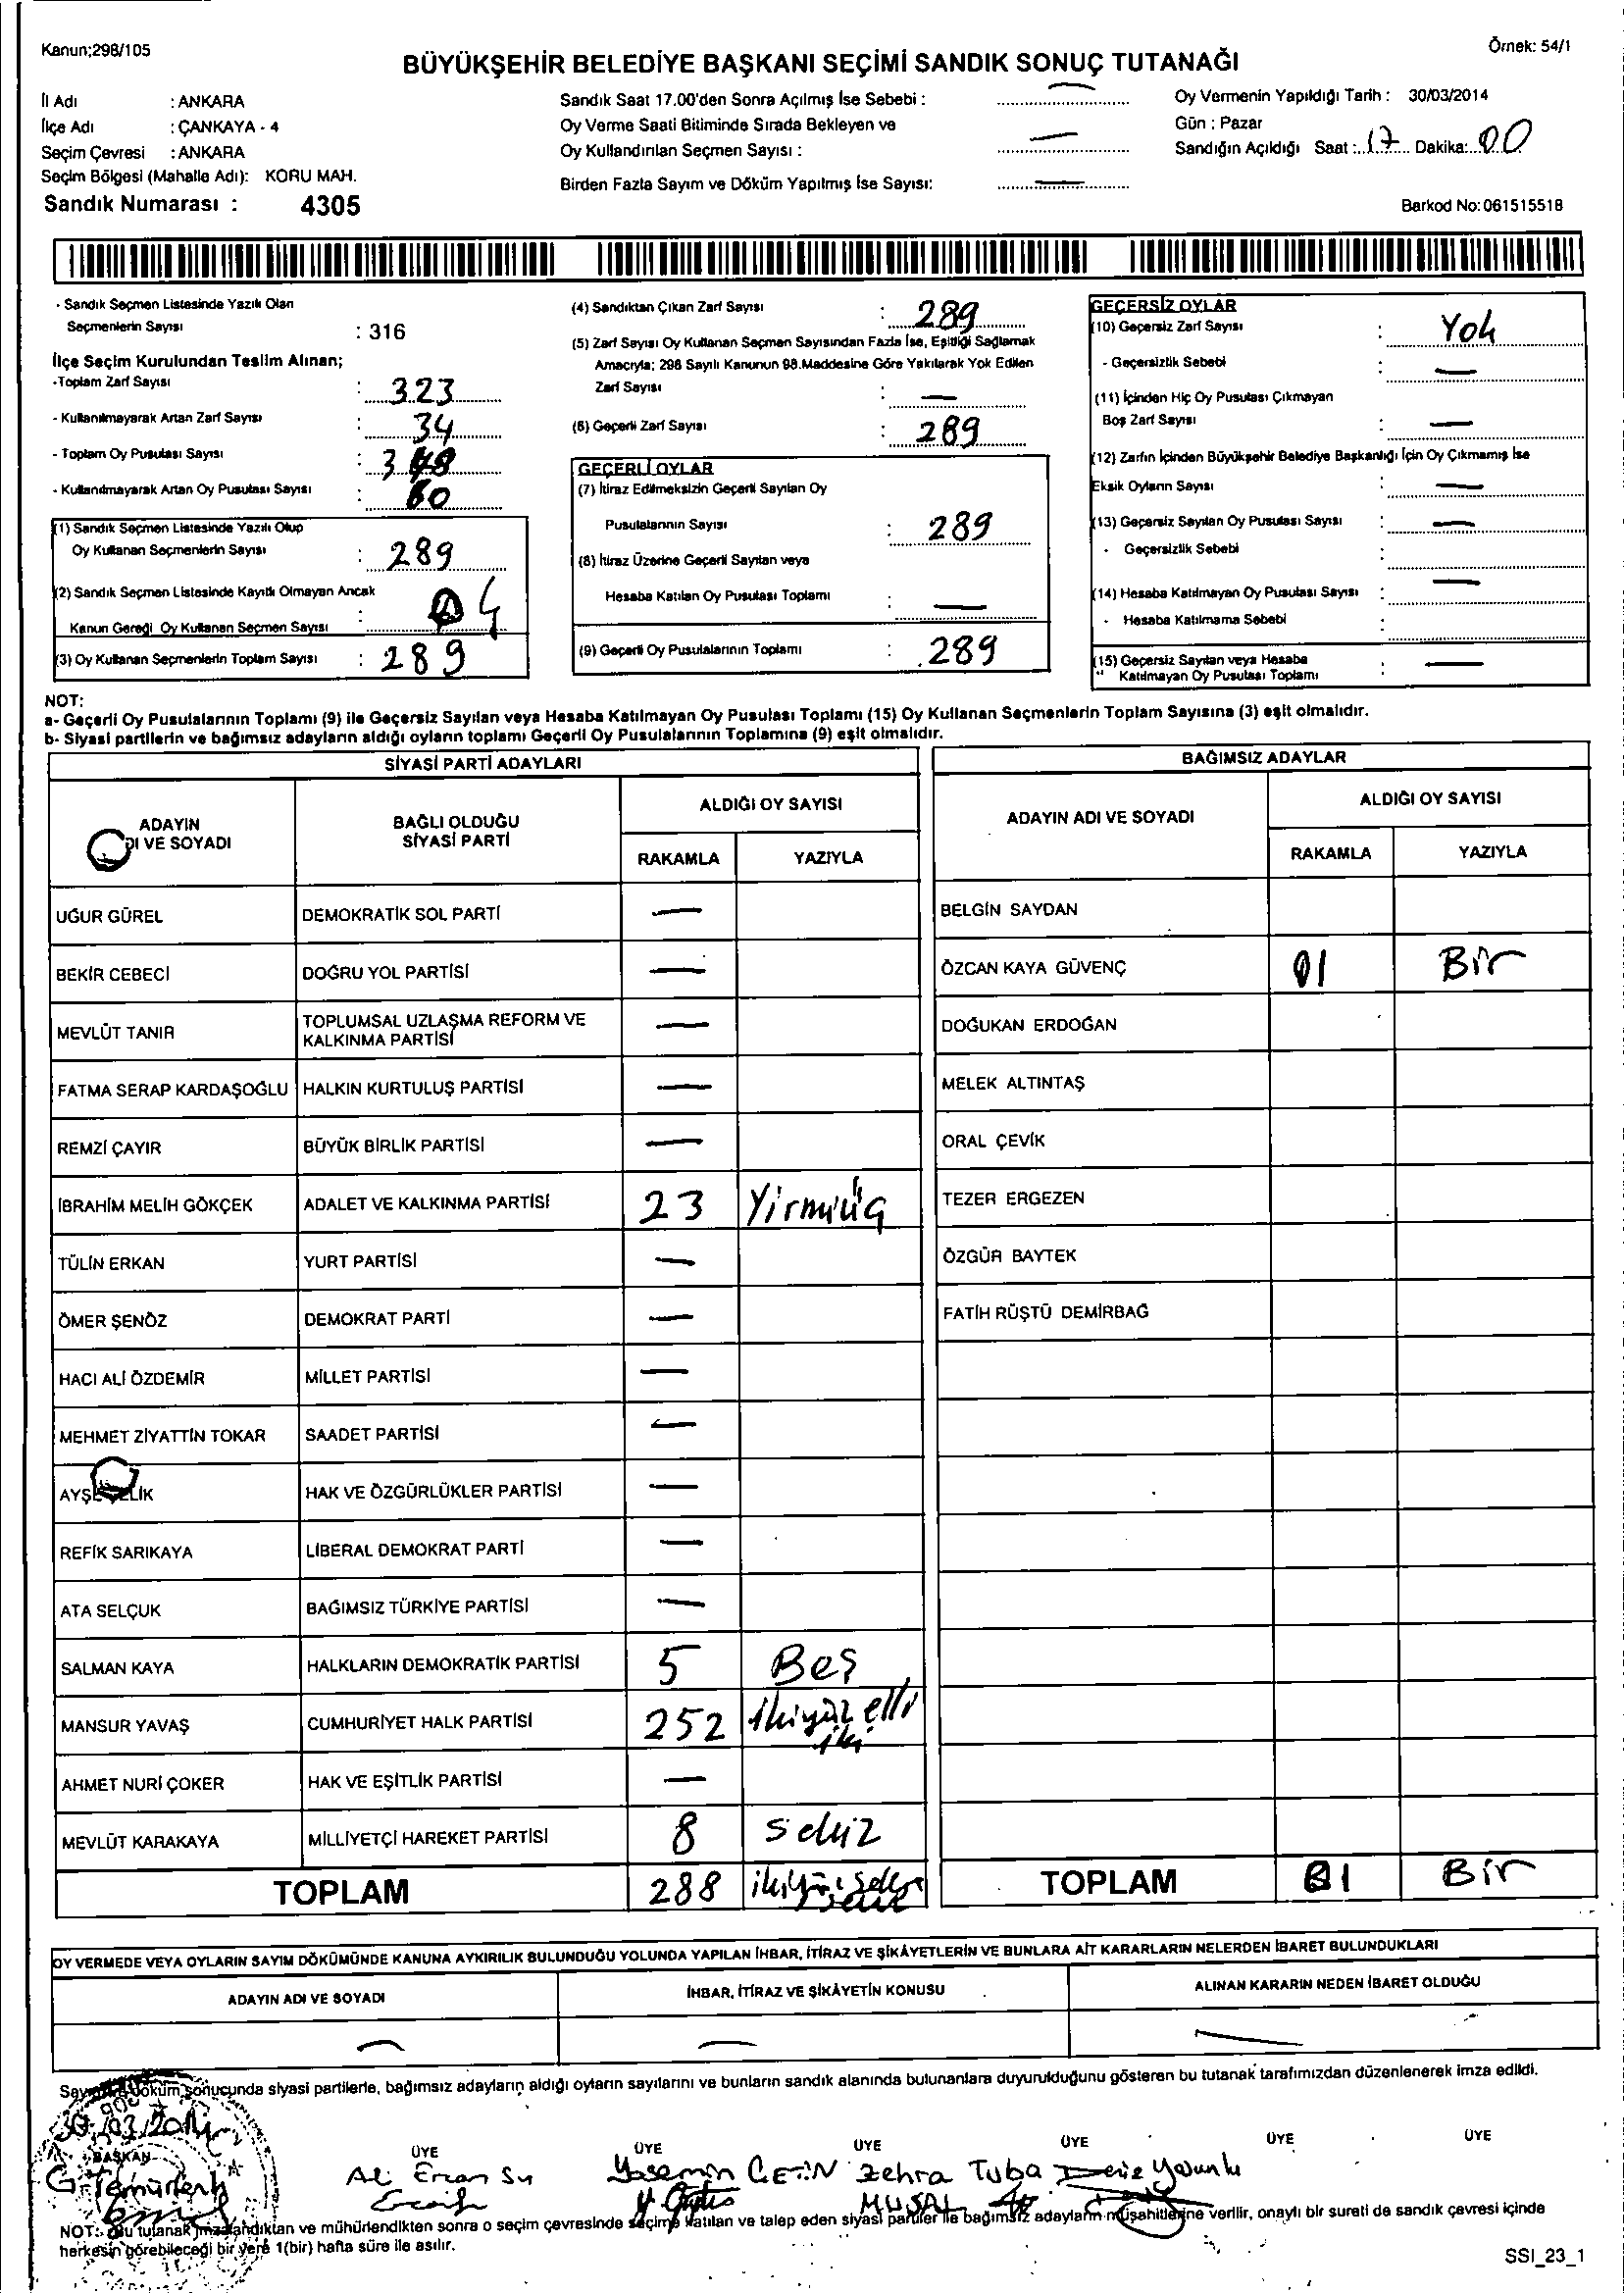 Kanun;298/105
Örnek: 54/1
BÜYÜKŞEHİR BELEDİYE BAŞKANI SEÇİMİ SANDIK SONUÇ TUTANAĞI
İl Adı : ANKARA
İlçe Adı : ÇANKAYA - 4
Seçim Çevresi : ANKARA
Seçim Bölgesi (Mahalle Adı): KORU MAH.
Sandık Numarası : 4305
Sandık Saat 17.00'den Sonra Açılmış İse Sebebi : —
Oy Verme Saati Bitiminde Sırada Bekleyen ve
Oy Kullandırılan Seçmen Sayısı : —
Birden Fazla Sayım ve Döküm Yapılmış İse Sayısı: —
Oy Vermenin Yapıldığı Tarih : 30/03/2014
Gün : Pazar
Sandığın Açıldığı Saat : 17 Dakika: 00
Barkod No: 061515518
- Sandık Seçmen Listesinde Yazılı Olan
Seçmenlerin Sayısı : 316
İlçe Seçim Kurulundan Teslim Alınan;
-Toplam Zarf Sayısı : 323
- Kullanılmayarak Artan Zarf Sayısı : 34
- Toplam Oy Pusulası Sayısı :
- Kullanılmayarak Artan Oy Pusulası Sayısı : 60
(1) Sandık Seçmen Listesinde Yazılı Olup
Oy Kullanan Seçmenlerin Sayısı : 289
(2) Sandık Seçmen Listesinde Kayıtlı Olmayan Ancak
Kanun Gereği Oy Kullanan Seçmen Sayısı : 4
(3) Oy Kullanan Seçmenlerin Toplam Sayısı : 289
(4) Sandıktan Çıkan Zarf Sayısı : 289
(5) Zarf Sayısı Oy Kullanan Seçmen Sayısından Fazla İse, Eşitliği Sağlamak
Amacıyla; 298 Sayılı Kanunun 98.Maddesine Göre Yakılarak Yok Edilen
Zarf Sayısı : —
(6) Geçerli Zarf Sayısı : 289
GEÇERLİ OYLAR
(7) İtiraz Edilmeksizin Geçerli Sayılan Oy
Pusulalarının Sayısı : 289
(8) İtiraz Üzerine Geçerli Sayılan veya
Hesaba Katılan Oy Pusulası Toplamı : —
(9) Geçerli Oy Pusulalarının Toplamı : 289
GEÇERSİZ OYLAR
(10) Geçersiz Zarf Sayısı : Yok
- Geçersizlik Sebebi : —
(11) İçinden Hiç Oy Pusulası Çıkmayan
Boş Zarf Sayısı : —
(12) Zarfın İçinden Büyükşehir Belediye Başkanlığı İçin Oy Çıkmamış İse
Eksik Oyların Sayısı : —
(13) Geçersiz Sayılan Oy Pusulası Sayısı : —
- Geçersizlik Sebebi :
(14) Hesaba Katılmayan Oy Pusulası Sayısı : —
- Hesaba Katılmama Sebebi :
(15) Geçersiz Sayılan veya Hesaba
Katılmayan Oy Pusulası Toplamı : —
NOT:
a- Geçerli Oy Pusulalarının Toplamı (9) ile Geçersiz Sayılan veya Hesaba Katılmayan Oy Pusulası Toplamı (15) Oy Kullanan Seçmenlerin Toplam Sayısına (3) eşit olmalıdır.
b- Siyasi partilerin ve bağımsız adayların aldığı oyların toplamı Geçerli Oy Pusulalarının Toplamına (9) eşit olmalıdır.
SİYASİ PARTİ ADAYLARI
ADAYIN
DI VE SOYADI
BAĞLI OLDUĞU
SİYASİ PARTİ
ALDIĞI OY SAYISI
RAKAMLA YAZIYLA
UĞUR GÜREL DEMOKRATİK SOL PARTİ —
BEKİR CEBECİ DOĞRU YOL PARTİSİ —
MEVLÜT TANIR TOPLUMSAL UZLAŞMA REFORM VE
KALKINMA PARTİSİ —
FATMA SERAP KARDAŞOĞLU HALKIN KURTULUŞ PARTİSİ —
REMZİ ÇAYIR BÜYÜK BİRLİK PARTİSİ —
İBRAHİM MELİH GÖKÇEK ADALET VE KALKINMA PARTİSİ 23 Yirmiüç
TÜLİN ERKAN YURT PARTİSİ —
ÖMER ŞENÖZ DEMOKRAT PARTİ —
HACI ALİ ÖZDEMİR MİLLET PARTİSİ —
MEHMET ZİYATTİN TOKAR SAADET PARTİSİ —
AYŞE ÇELİK HAK VE ÖZGÜRLÜKLER PARTİSİ —
REFİK SARIKAYA LİBERAL DEMOKRAT PARTİ —
ATA SELÇUK BAĞIMSIZ TÜRKİYE PARTİSİ —
SALMAN KAYA HALKLARIN DEMOKRATİK PARTİSİ 5 Beş
MANSUR YAVAŞ CUMHURİYET HALK PARTİSİ 252 ikiyüz elli
iki
AHMET NURİ ÇOKER HAK VE EŞİTLİK PARTİSİ —
MEVLÜT KARAKAYA MİLLİYETÇİ HAREKET PARTİSİ 8 Sekiz
TOPLAM 288
BAĞIMSIZ ADAYLAR
ADAYIN ADI VE SOYADI
ALDIĞI OY SAYISI
RAKAMLA YAZIYLA
BELGİN SAYDAN
ÖZCAN KAYA GÜVENÇ 01 Bir
DOĞUKAN ERDOĞAN
MELEK ALTINTAŞ
ORAL ÇEVİK
TEZER ERGEZEN
ÖZGÜR BAYTEK
FATİH RÜŞTÜ DEMİRBAĞ
TOPLAM 01 Bir
OY VERMEDE VEYA OYLARIN SAYIM DÖKÜMÜNDE KANUNA AYKIRILIK BULUNDUĞU YOLUNDA YAPILAN İHBAR, İTİRAZ VE ŞİKÂYETLERİN VE BUNLARA AİT KARARLARIN NELERDEN İBARET BULUNDUKLARI
ADAYIN ADI VE SOYADI İHBAR, İTİRAZ VE ŞİKÂYETİN KONUSU ALINAN KARARIN NEDEN İBARET OLDUĞU
— — —
Sayım ve döküm sonucunda siyasi partilerle, bağımsız adayların aldığı oyların sayılarını ve bunların sandık alanında bulunanlara duyurulduğunu gösteren bu tutanak tarafımızdan düzenlenerek imza edildi.
30/03/2014
BAŞKAN ÜYE ÜYE ÜYE ÜYE ÜYE ÜYE
Ali Ercan Su Yasemin ÇETİN Zehra Tuba
MUSAL
NOT: Bu tutanak imzalandıktan ve mühürlendikten sonra o seçim çevresinde seçime katılan ve talep eden siyasi partiler ile bağımsız adayların müşahitlerine verilir, onaylı bir sureti de sandık çevresi içinde
herkesin görebileceği bir yere 1(bir) hafta süre ile asılır.
SSI_23_1